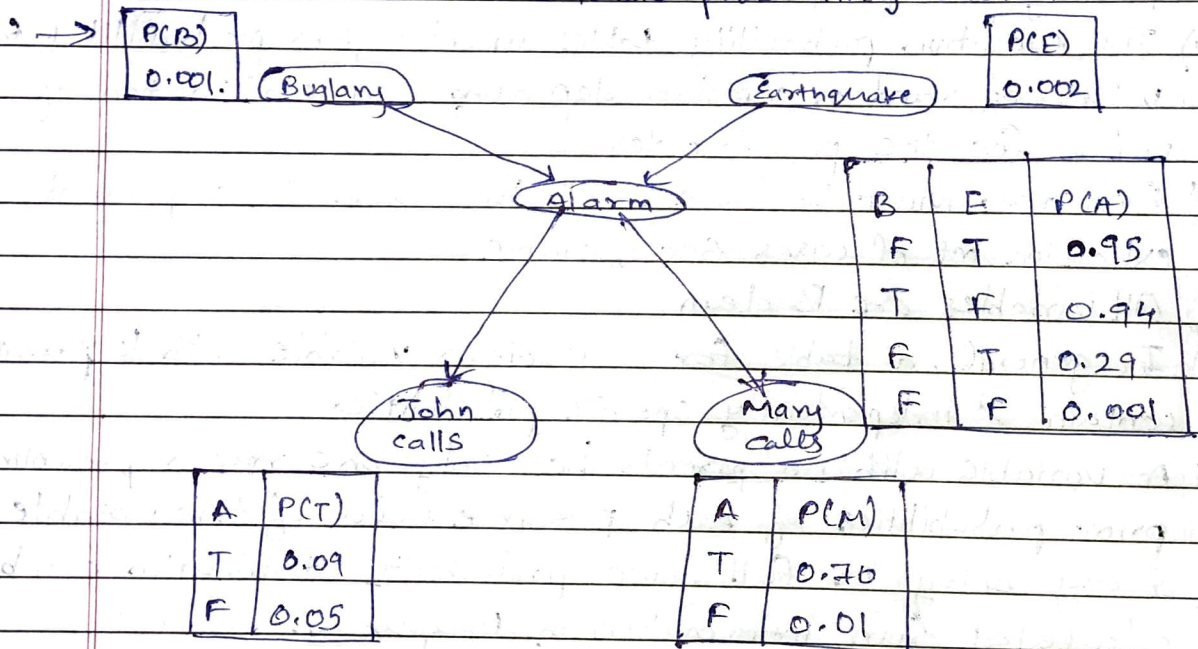 P(B)
0.001.
Buglary
Earthquake
P(E)
0.002
Alarm
B E P(A)
F T 0.95
T F 0.94
F T 0.29
F F 0.001
John
calls
Mary
calls
A P(T)
T 0.09
F 0.05
A P(M)
T 0.70
F 0.01